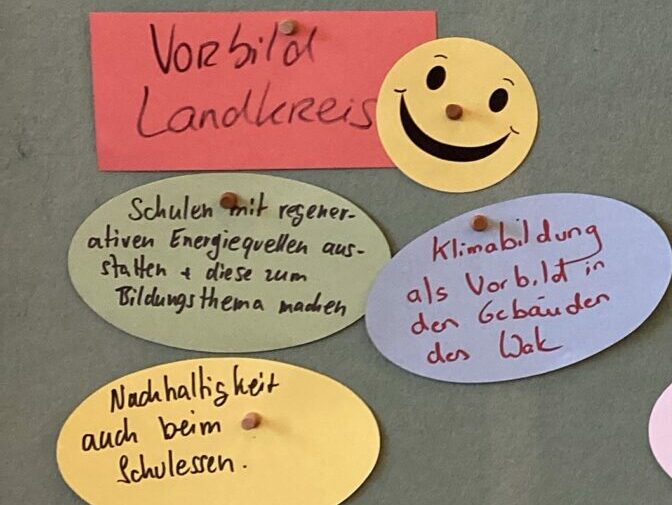 Vorbild
Landkreis
Schulen mit regener-
ativen Energiequellen aus-
statten + diese zum
Bildungsthema machen
Klimabildung
als Vorbild in
den Gebäuden
des Wak
Nachhaltigkeit
auch beim
Schulessen.